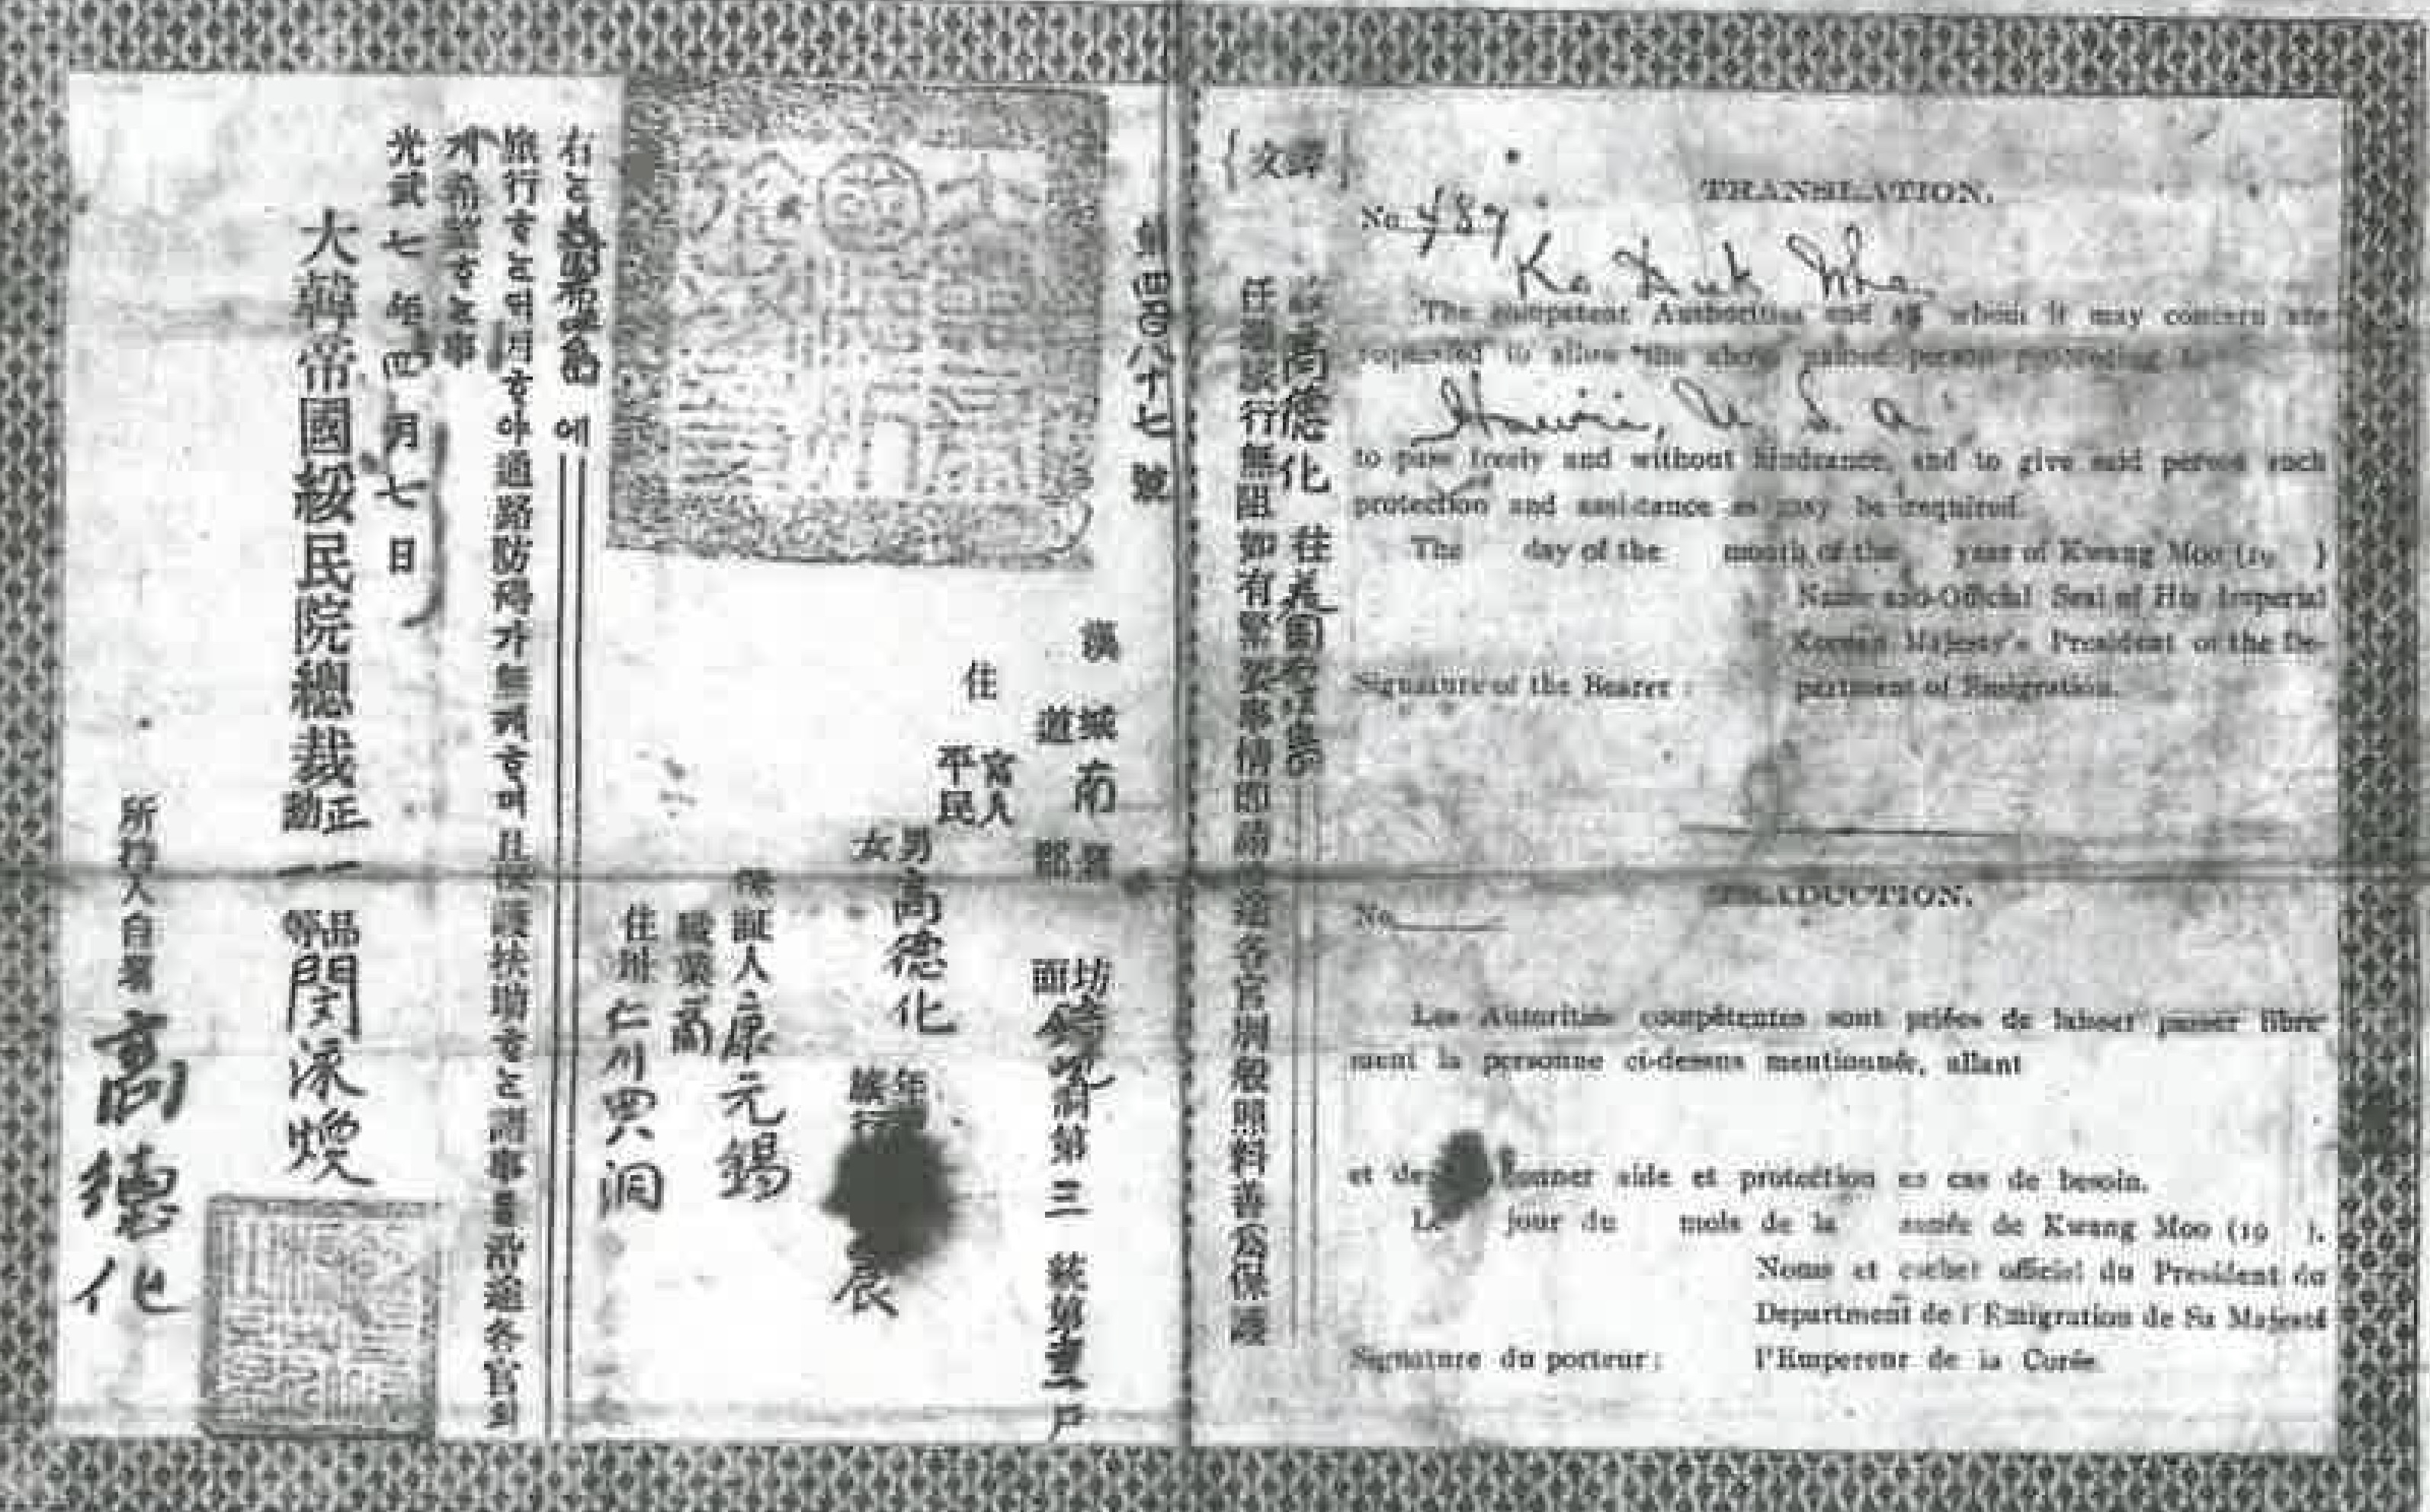 第四百八十七號
漢城南署
道 郡
坊
面
契第三統第壹戶
住
官人
平民
男
女
高德化
年
旅行
農
保証人康元錫
職業商
住址仁川四洞
右는美國布哇島에
旅行하는 터이니 하야通路防碍가無케하며且保護扶助하는諸事를沿途各官의
게希望하는事
光武七年四月七日
大韓帝國綏民院總裁正一品
勳一等
閔泳煥
所持人自署高德化
{文譯}
茲高德化往美國布哇島
任遊旅行無阻如有緊要事情卽請沿途各官別般照料善爲保護
TRANSLATION.
No. 487
Ko Duk Wha
The competent Authorities and all whom it may concern are
requested to allow the above named person proceeding to
Hawaii, U S A
to pass freely and without hindrance, and to give said person such
protection and assistance as may be required.
The day of the month of the year of Kwang Moo (19 )
Name and Official Seal of His Imperial
Korean Majesty's President of the De-
partment of Emigration.
Signature of the Bearer :
TRADUCTION.
No.
Les Autorités compétentes sont priées de laisser passer libre
ment la personne ci-dessus mentionnée, allant
et de donner aide et protection en cas de besoin.
Le jour du mois de la année de Kwang Moo (19 ).
Noms et cachet officiel du President du
Department de l'Emigration de Sa Majesté
l'Empereur de la Corée
Signature du porteur :